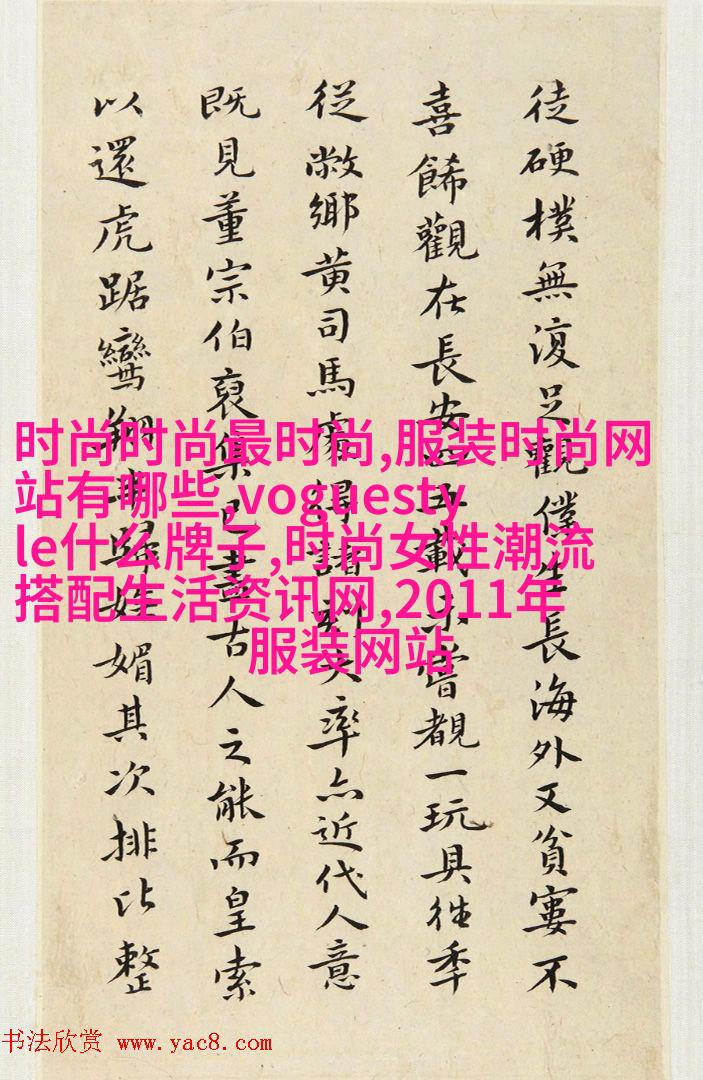 徒硬樸無復足觀僕生長海外又貧窶不
喜餙觀在長安五載未嘗覩一玩具往年
從敝鄉黄司馬處得諸刻大率亦近代人意
既見董宗伯裒集已盡古人之能而皇索
以還虎踞鸞翔媚其次排比整
时尚时尚最时尚,服装时尚网
站有哪些,voguesty
le什么牌子,时尚女性潮流
搭配生活资讯网,2011年
服装网站
书法欣赏 www.yac8.com